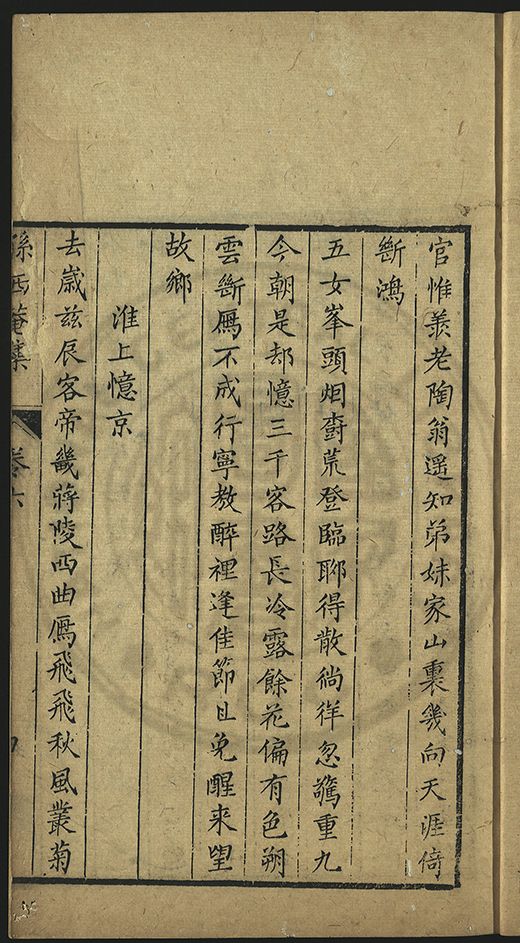 官惟羨老陶翁遥知弟妹家山裏幾向天涯倚
斷鴻
五女峯頭烟樹荒登臨聊得散徜徉忽驚重九
今朝是却憶三千客路長冷露餘花偏有色朔
雲斷鴈不成行寧教醉裡逢佳節且免醒来望
故鄉
淮上憶京
去歲兹辰客帝畿蔣陵西曲鴈飛飛秋風叢菊
孫西菴集
卷六